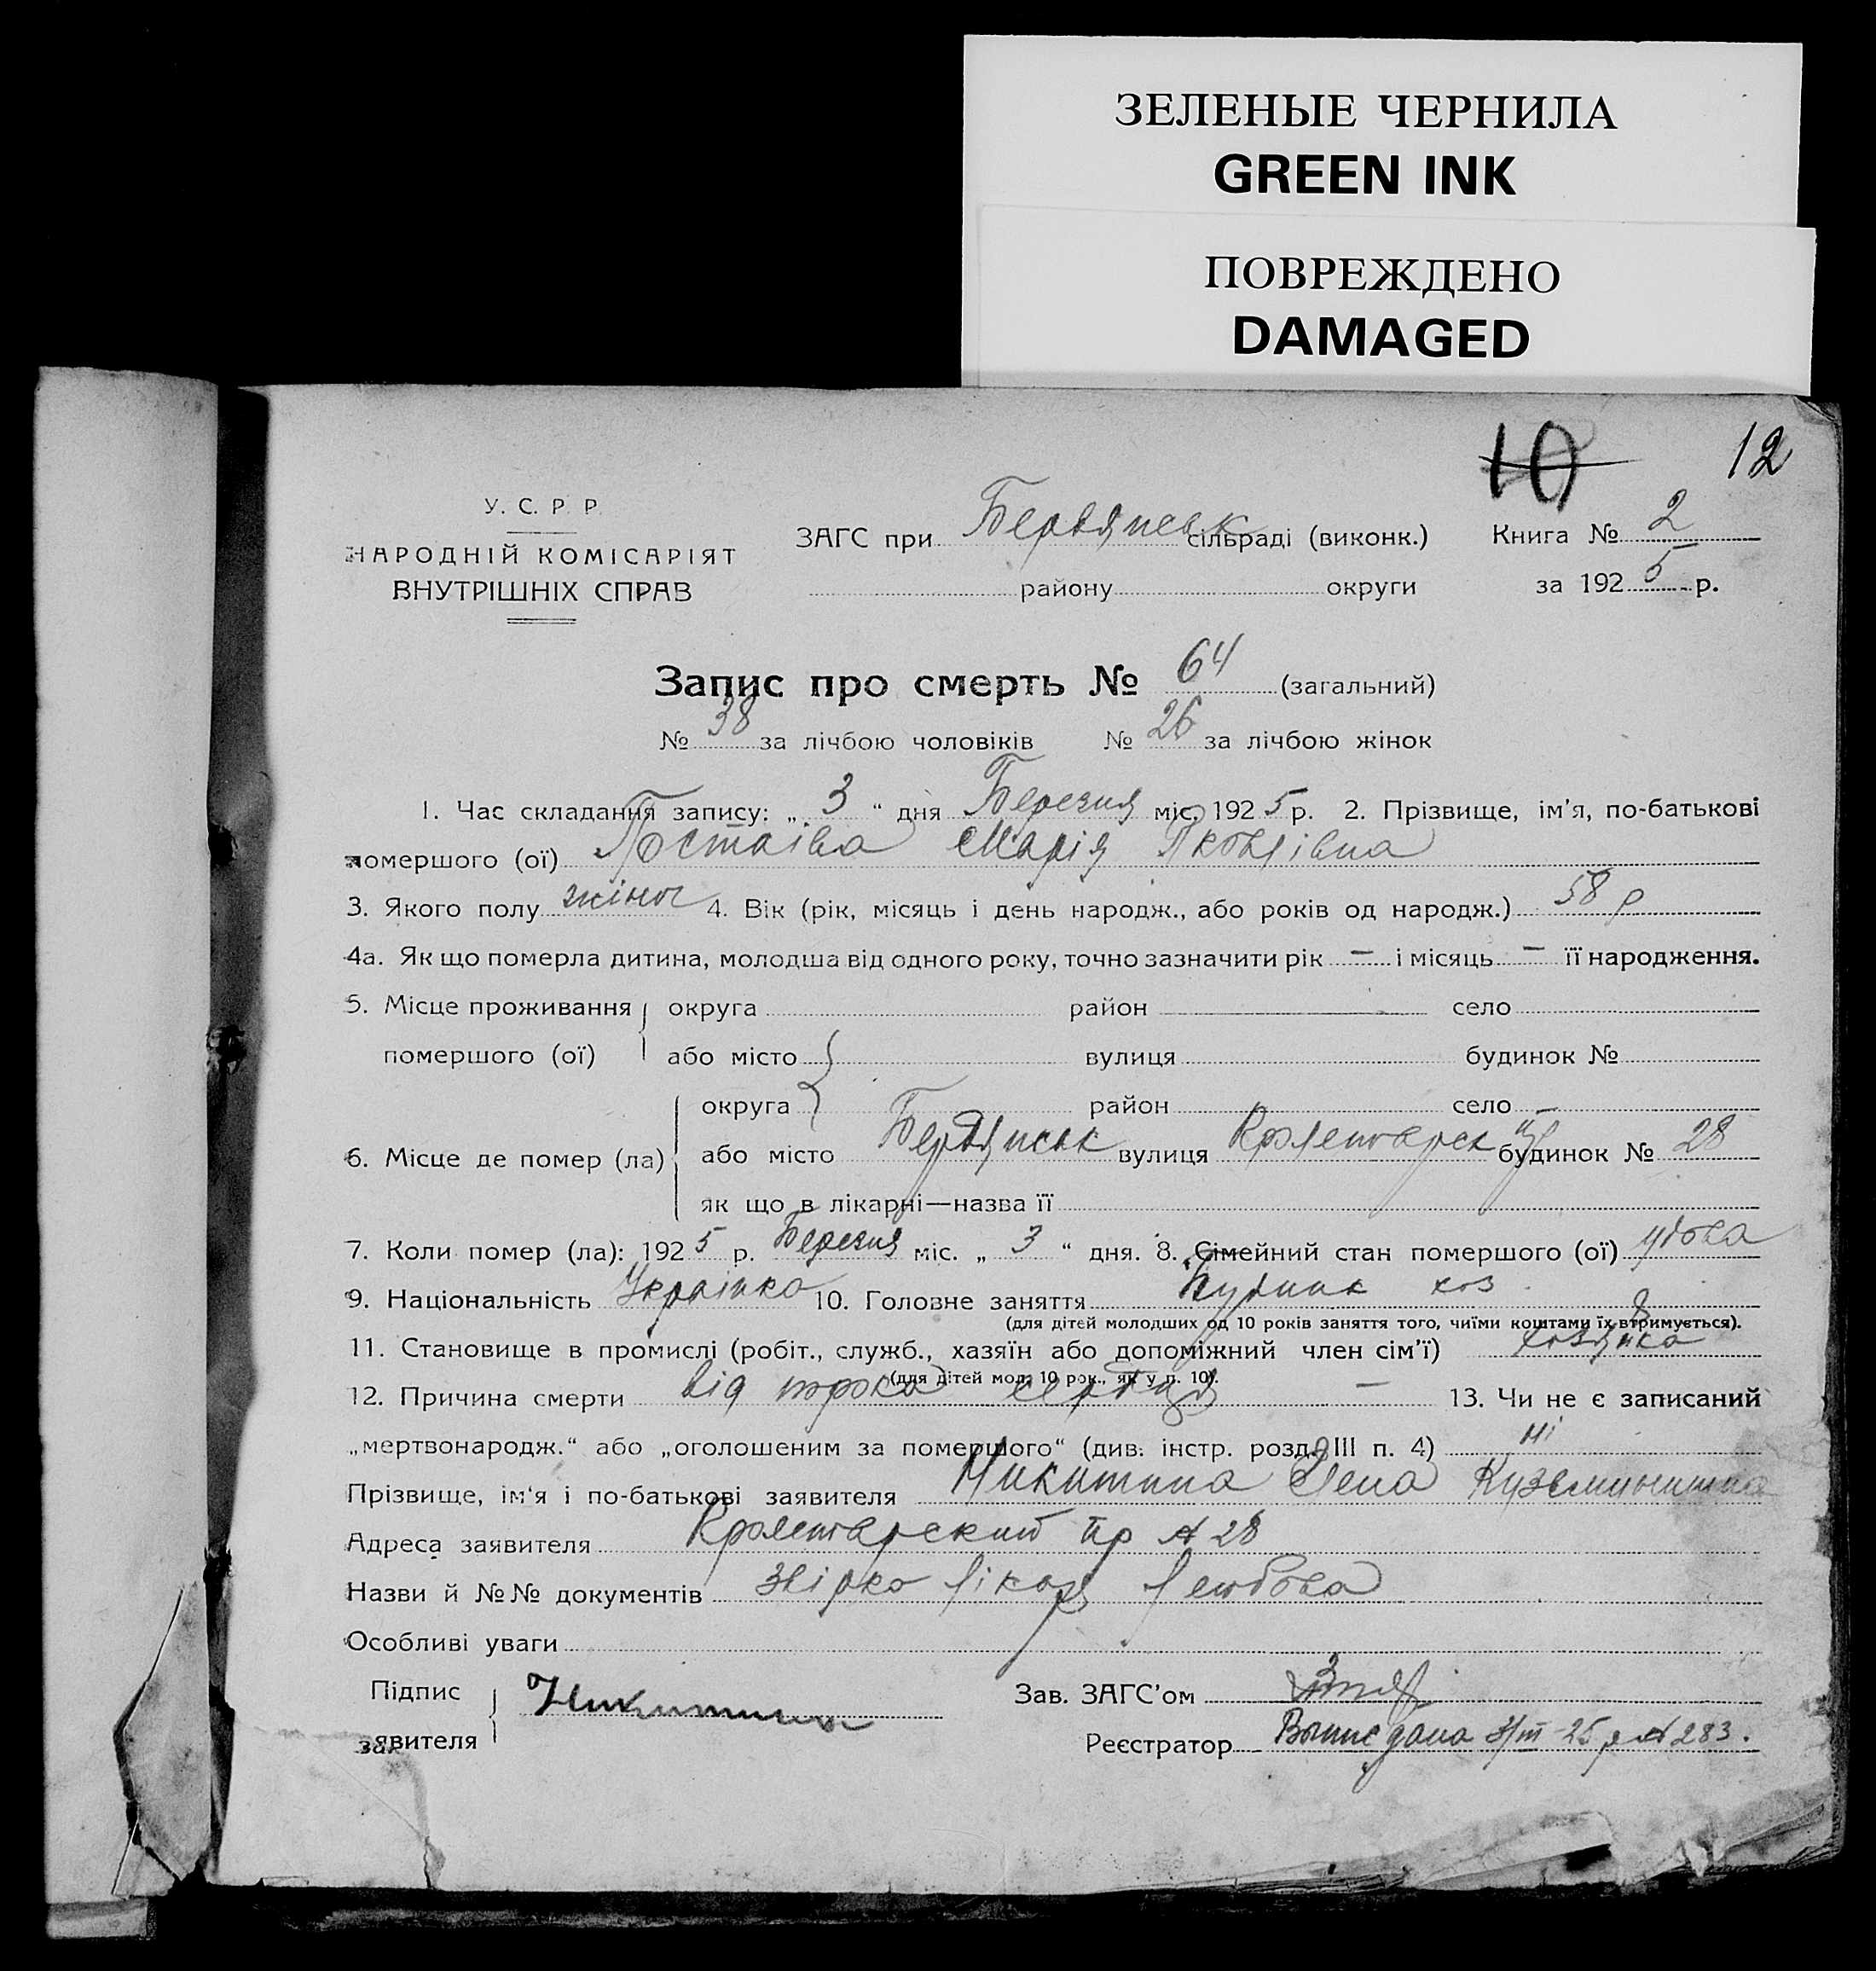 ЗЕЛЕНЫЕ ЧЕРНИЛА
GREEN INK
ПОВРЕЖДЕНО
DAMAGED
10 12
У. С. Р. Р.
НАРОДНІЙ КОМІСАРІЯТ
ВНУТРІШНІХ СПРАВ
ЗАГС при Бердянськ сільраді (виконк.) Книга № 2
району округи за 1925 р.
Запис про смерть № 64 (загальний)
№ 38 за лічбою чоловіків № 26 за лічбою жінок
1. Час складання запису: „ 3 “ дня Березня міс. 1925 р. 2. Прізвище, ім'я, по-батькові
помершого (ої) Марія Яковлівна
3. Якого полу жіноч 4. Вік (рік, місяць і день народж., або років од народж.) 58 р
4а. Як що померла дитина, молодша від одного року, точно зазначити рік — і місяць — її народження.
5. Місце проживання округа район село
помершого (ої) або місто вулиця будинок №
округа район село —
6. Місце де помер (ла) або місто Бердянськ вулиця будинок № 28
як що в лікарні—назва її
7. Коли помер (ла): 1925 р. Березня міс. „ 3 “ дня. 8. Сімейний стан помершого (ої) удова
9. Національність Українка 10. Головне заняття хоз
(для дітей молодших од 10 років заняття того, чиїми коштами їх втримується).
11. Становище в промислі (робіт., служб., хазяїн або допоміжний член сім'ї) хозяйка
(для дітей мол. 10 рок., як у п. 10).
12. Причина смерти від порока сердця — 13. Чи не є записаний
„мертвонародж.“ або „оголошеним за помершого“ (див. інстр. розд. III п. 4) ні
Прізвище, ім'я і по-батькові заявителя Никитина Елена
Адреса заявителя пр № 28
Назви й №№ документів лікаря
Особливі уваги
Підпис Никитина Зав. ЗАГС'ом
заявителя Реєстратор Выпис дана 3/III-25 р № 283.